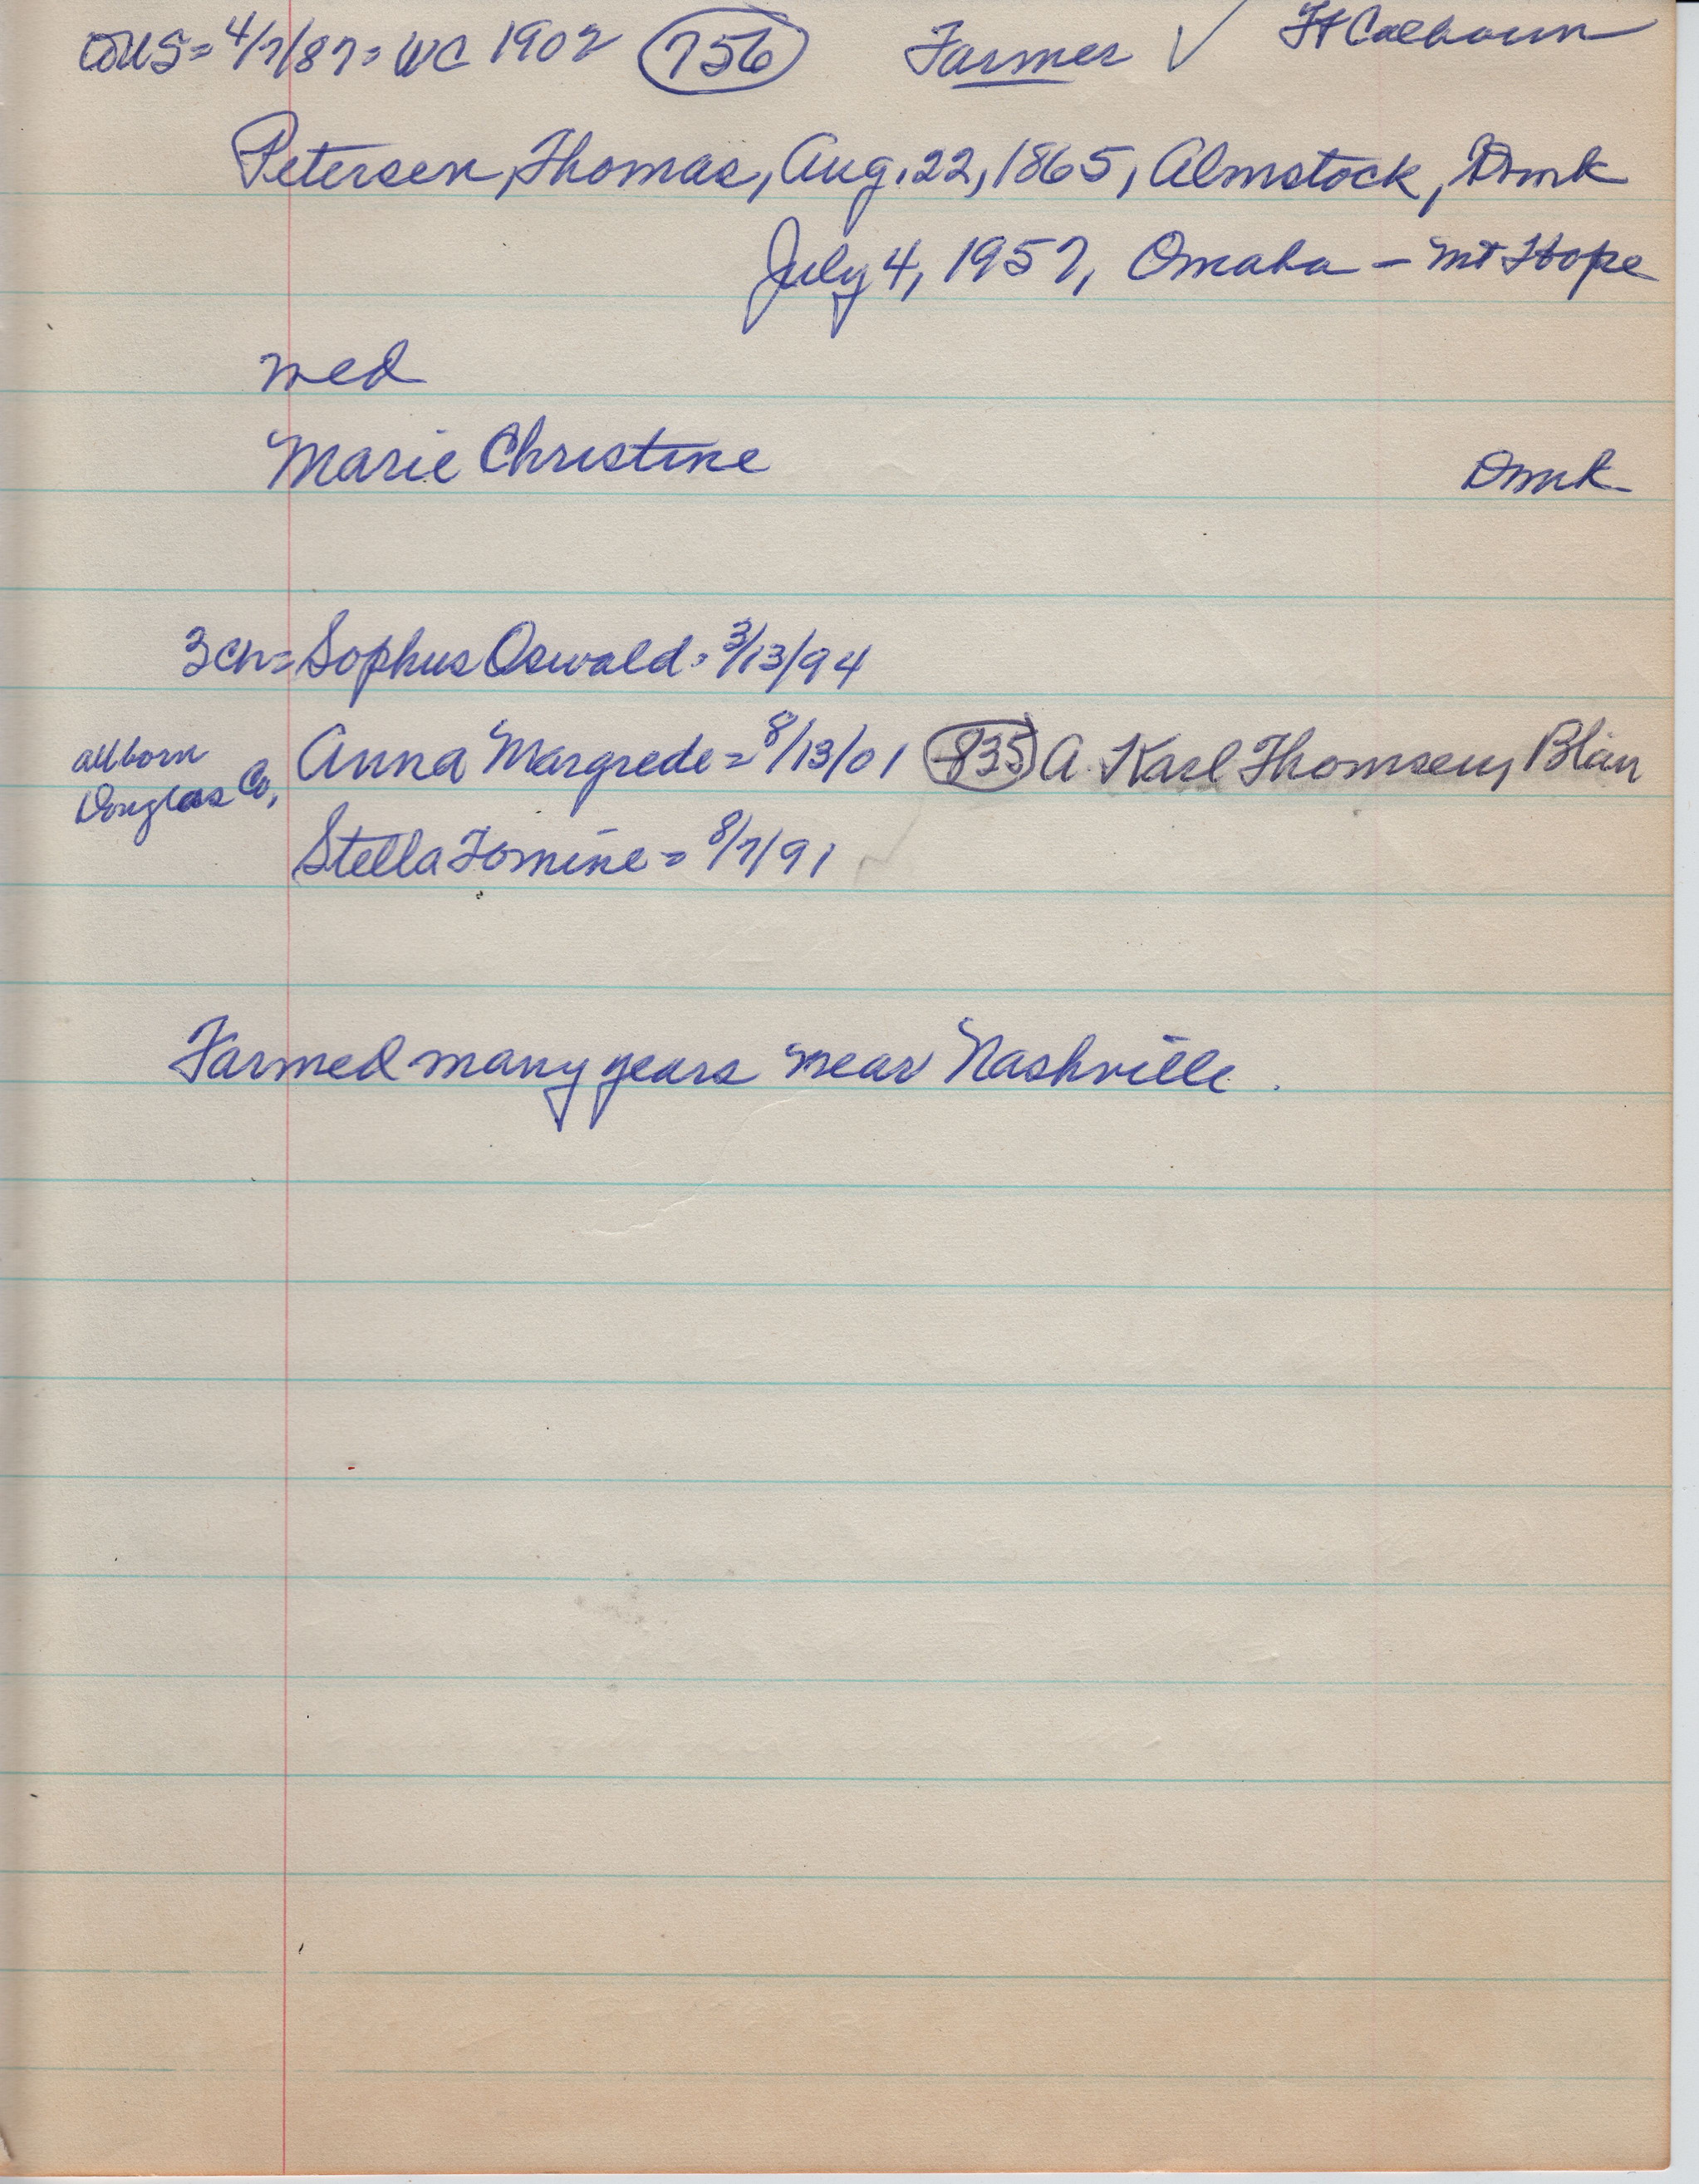 to US = 4/7/87 = WC 1902 (756) Farmer ✓ Ft Calhoun
Petersen, Thomas, Aug. 22, 1865, Almstock, Dmk
July 4, 1957, Omaha – Mt Hope
med
Marie Christine Dmk
3 ch = Sophus Oswald = 3/13/94
all born Douglas Co, Anna Margrede = 8/13/01 (835) A. Karl Thomsen, Blair
Stella Tomine = 8/7/91
Farmed many years near Nashville.